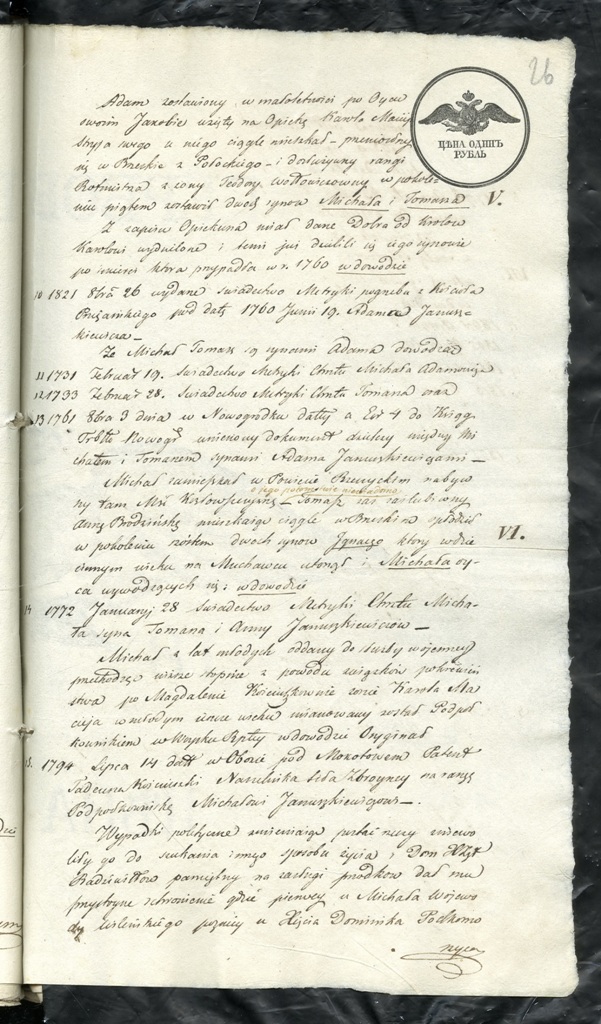 26
ЦѢНА ОДИНЪ
РУБЛЬ
Adam zostawiony w małoletności po Oycu
swoim Jakobie wzięty na Opiekę Karola Macieja
Stryja swego u niego ciągle mieszkał – przeniosłszy
się w Brzeskie z Połockiego – i dosłużywszy rangi
Rotmistrza z żony Teodory Wołłowiczowny w pokole-
niu piątem zostawił dwóch synow Michała i Tomasza V.
Z zapisu Opiekuna miał dane Dobra od
Karolowi wydzielone i temi już dzielili się jego synowie
po śmierci która przypadła w r. 1760 w dowodzie
10 1821 8bra 26 wydane świadectwo Metryki pogrzebu z Kościoła
Prużańskiego pod datą 1760 Junii 19. Adama Janusz-
kiewicza –
Że Michał Tomasz są synami Adama dowodzą
11 1731 Februar 19. świadectwo Metryki Chrztu Michała Adamowicza
12 1733 Februar 28. świadectwo Metryki Chrztu Tomasza oraz
13 1761 8bra 3 dnia w Nowogródku datty a Eod 4 do Xiąg
Trbłu Nowogr wniesiony dokument dzielczy między Mi-
chałem i Tomaszem synami Adama Januszkiewiczami –
Michał zamieszkał w Powiecie Brzeskim nabyw-
szy tam – Tomasz zaś zaślubiwszy
Annę Brodzińską mieszkając ciągle w Brzeskim spłodził
w pokoleniu szóstem dwoch synow Ignacego ktory w dzie- VI.
cinnym wieku na Muchawcu utonął i Michała oy-
ca wywodzących się: w dowodzie
14 1772 Januarij 28 świadectwo Metryki Chrztu Micha-
ła syna Tomasza i Anny Januszkiewiczow –
Michał z lat młodych oddany do służby wojennej
przechodząc niższe stopnie z powodu związków pokrewień-
stwa po Magdalenie Kościuszkownie żonie Karola Ma-
cieja w młodym jeszcze wieku mianowany został Podpół-
kownikiem w Woysku Rptey w dowodzie Oryginał
15. 1794 Lipca 14 datt w Obozie pod Mokotowem Patent
Tadeusza Kościuszki Naczelnika Siły Zbroyney na rangę
Podpółkownika Michałowi Januszkiewiczowi –
Wypadki polityczne zmieniające postać rzeczy zniewo-
liły go do szukania innego sposobu życia, Dom
Radziwiłłow pamiętny na zasługi przodkow dał mu
przystoyne schronienie gdzie pierwey u Michała Wojewo-
dy Wileńskiego poźniey u Xięcia Dominika Podkomo-
rzyca